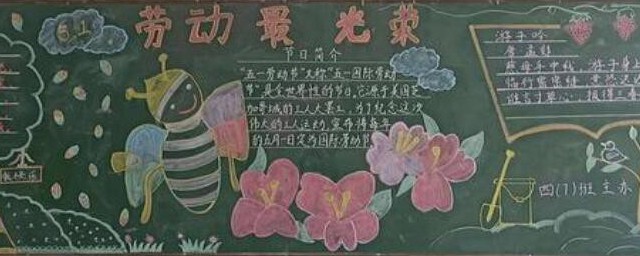 5.1
劳动最光荣
节日简介
"五一劳动节"又称"五一国际劳动
节"是全世界性的节日,它源于美国芝
加哥城的工人大罢工,为了纪念这次
伟大的工人运动,宣布将每年
的五月一日定为国际劳动节
游子吟
唐 孟郊
慈母手中线 游子身上
临行密密缝 意恐迟
谁言寸草心 报得三春
四(7)班 主办
快乐